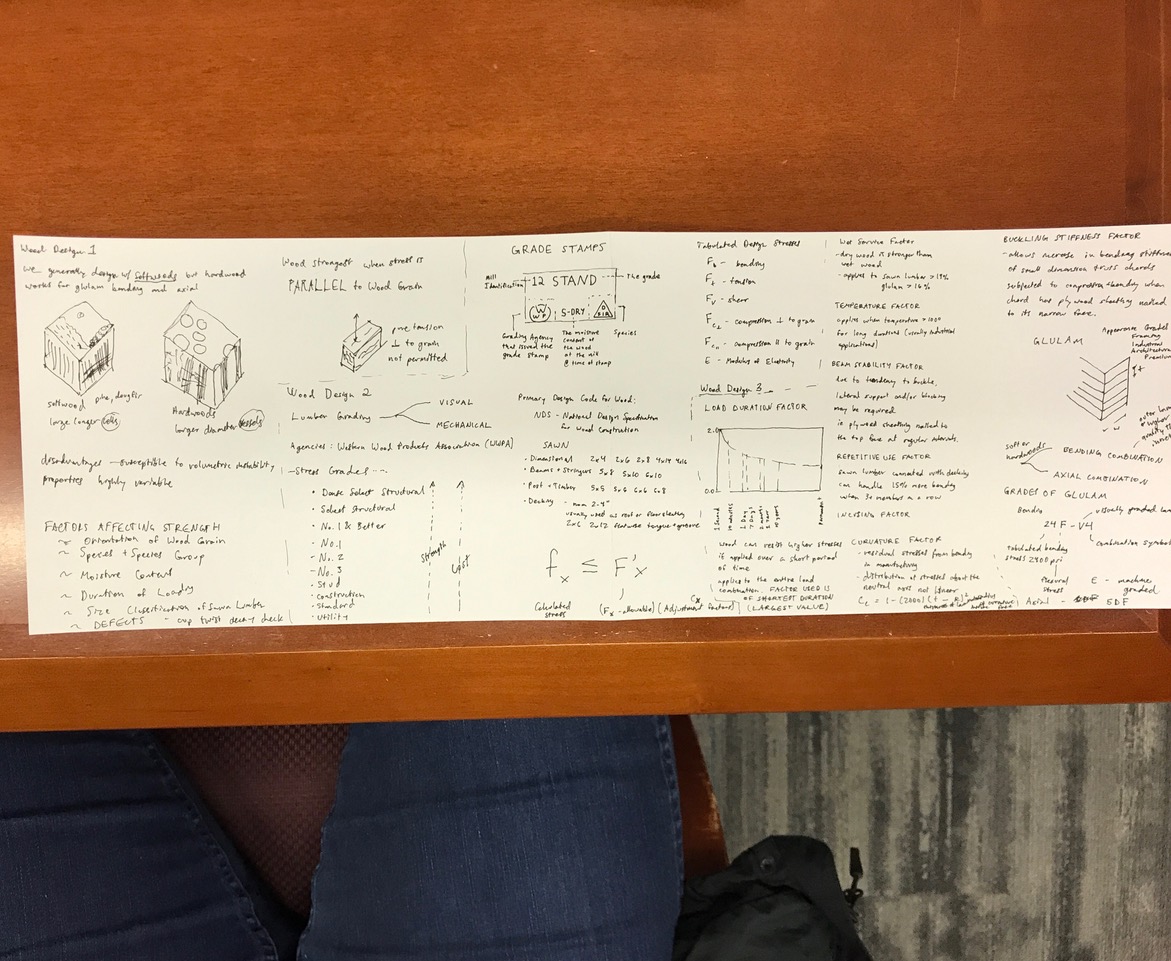 Wood Design 1
we generally design w/ softwoods but hardwood
works for glulam bending and axial
softwood pine, doug fir
large longer cells
Hardwoods
larger diameter vessels
disadvantages - susceptible to volumetric instability
properties highly variable
FACTORS AFFECTING STRENGTH
~ Orientation of Wood Grain
~ Species + Species Group
~ Moisture Content
~ Duration of Loading
~ Size Classification of Sawn Lumber
~ DEFECTS - cup twist decay check
Wood strongest when stress is
PARALLEL to Wood Grain
pure tension
⊥ to grain
not permitted
Wood Design 2
Lumber Grading
VISUAL
MECHANICAL
Agencies: Western Wood Products Association (WWPA)
- Stress Grades
• Dense Select Structural
• Select Structural
• No. 1 & Better
• No. 1
• No. 2
• No. 3
• Stud
• Construction
• Standard
• Utility
strength
cost
GRADE STAMPS
Mill
Identification
12 STAND
The grade
S-DRY
FIR
Grading Agency
that issued the
grade stamp
The moisture
content of
the wood
at the mill
@ time of stamp
Species
Primary Design Code for Wood:
NDS - National Design Specification
for Wood Construction
SAWN
• Dimensional 2x4 2x6 2x8 4x14 4x16
• Beams + Stringers 5x8 5x10 6x10
• Post + Timber 5x5 5x6 6x6 6x8
• Decking - nom 2-4"
usually used as roof or floor sheathing
2x6 2x12 features tongue + groove
fx ≤ F'x
Calculated
stress
(Fx - allowable) (Adjustment factors)
Cx
Tabulated Design Stresses
Fb - bending
Ft - tension
Fv - shear
Fc⊥ - compression ⊥ to grain
Fc|| - compression || to grain
E - Modulus of Elasticity
Wood Design 3
LOAD DURATION FACTOR
2.0
0.0
1 Second
10 minutes
1 Day
7 Days
2 months
1 year
10 years
Permanent
wood can resist higher stresses
if applied over a short period
of time
applies to the entire load
combination. FACTOR USED IS
OF SHORTEST DURATION
(LARGEST VALUE)
Wet Service Factor
- dry wood is stronger than
wet wood
- applies to sawn lumber > 19%
glulam > 16%
TEMPERATURE FACTOR
applies when temperature > 100°
for long durations (usually industrial
applications)
BEAM STABILITY FACTOR
due to tendency to buckle,
lateral support and/or blocking
may be required
ie plywood sheathing nailed to
the top face at regular intervals.
REPETITIVE USE FACTOR
sawn lumber connected with decking
can handle 15% more bending
when 3+ members in a row
INCISING FACTOR
CURVATURE FACTOR
- residual stresses from bending
in manufacturing
- distribution of stresses about the
neutral axis not linear
BUCKLING STIFFNESS FACTOR
- allows increase in bending stiffness
of small dimension truss chords
subjected to compression + bending when
chord has plywood sheathing nailed
to its narrow face.
GLULAM
Appearance Grades
Framing
Industrial
Architectural
Premium
BENDING COMBINATION
AXIAL COMBINATION
GRADES OF GLULAM
Bending
24F - V4
visually graded
combination symbol
tabulated bending
stress 2400 psi
E - machine
graded
Axial